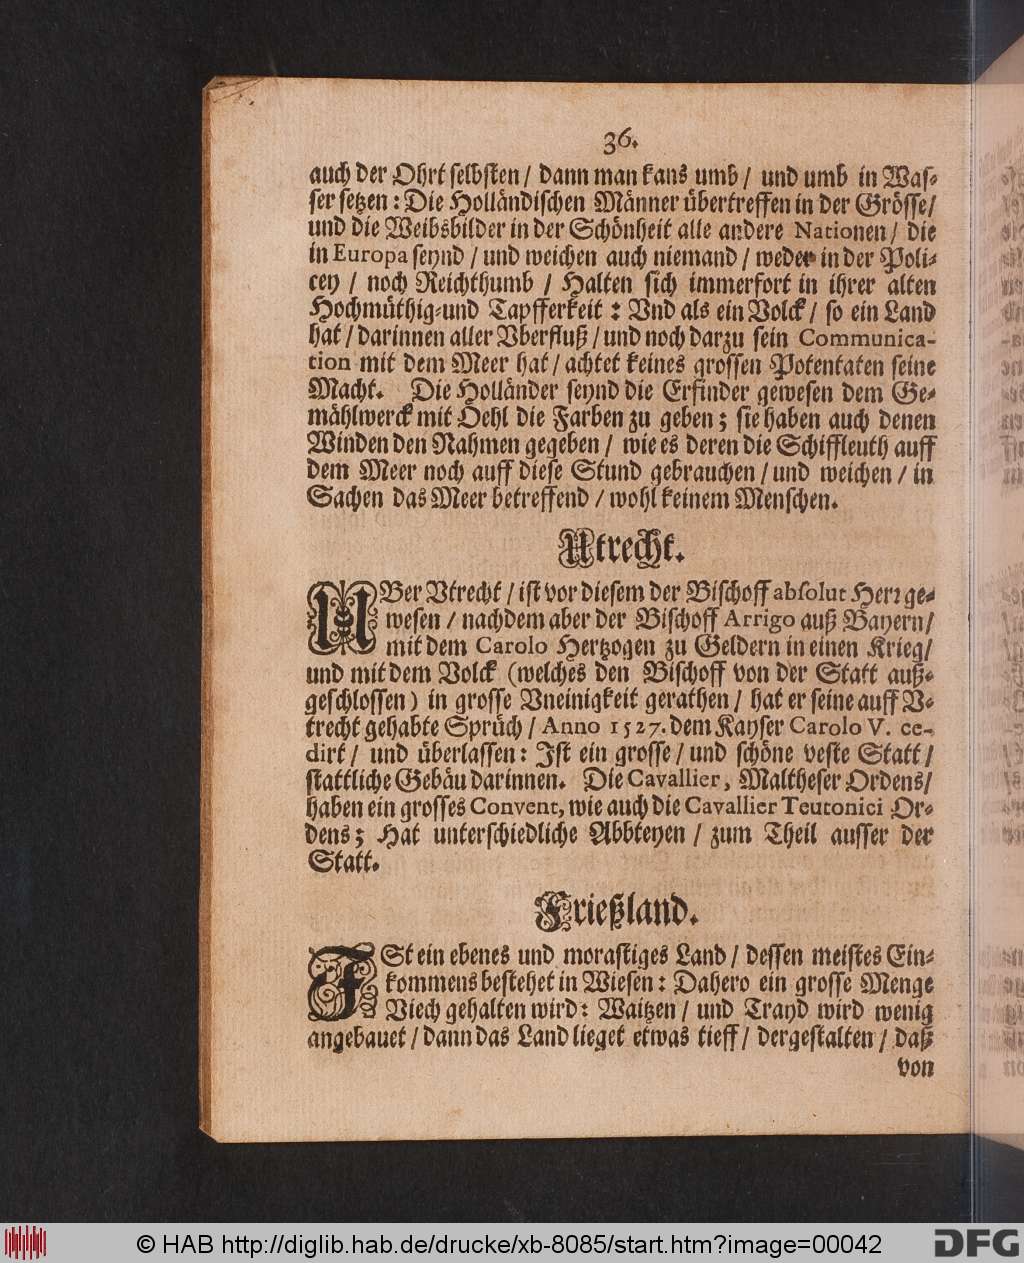 36.
auch der Ohrt selbsten / dann man kans umb / und umb in Was⸗
ser setzen : Die Holländischen Männer übertreffen in der Grösse /
und die Weibsbilder in der Schönheit alle andere Nationen / die
in Europa seynd / und weichen auch niemand / weder in der Poli⸗
cey / noch Reichthumb / Halten sich immerfort in ihrer alten
Hochmüthig⸗und Tapfferkeit : Vnd als ein Volck / so ein Land
hat / darinnen aller Vberfluß / und noch darzu sein Communica-
tion mit dem Meer hat / achtet keines grossen Potentaten seine
Macht. Die Holländer seynd die Erfinder gewesen dem Ge⸗
mählwerck mit Oehl die Farben zu geben ; sie haben auch denen
Winden den Nahmen gegeben / wie es deren die Schiffleuth auff
dem Meer noch auff diese Stund gebrauchen / und weichen / in
Sachen das Meer betreffend / wohl keinem Menschen.
Utrecht.
UBer Vtrecht / ist vor diesem der Bischoff absolut Herr ge⸗
wesen / nachdem aber der Bischoff Arrigo auß Bayern /
mit dem Carolo Hertzogen zu Geldern in einen Krieg /
und mit dem Volck (welches den Bischoff von der Statt auß⸗
geschlossen) in grosse Vneinigkeit gerathen / hat er seine auff V⸗
trecht gehabte Sprüch / Anno 1527. dem Kayser Carolo V. ce-
dirt / und überlassen : Ist ein grosse / und schöne veste Statt /
stattliche Gebäu darinnen. Die Cavallier, Maltheser Ordens /
haben ein grosses Convent, wie auch die Cavallier Teutonici Or⸗
dens ; Hat unterschiedliche Abbteyen / zum Theil ausser der
Statt.
Frießland.
ISt ein ebenes und morastiges Land / dessen meistes Ein⸗
kommens bestehet in Wiesen : Dahero ein grosse Menge
Viech gehalten wird : Waitzen / und Trayd wird wenig
angebauet / dann das Land lieget etwas tieff / dergestalten / daß
von
© HAB http://diglib.hab.de/drucke/xb-8085/start.htm?image=00042
DFG